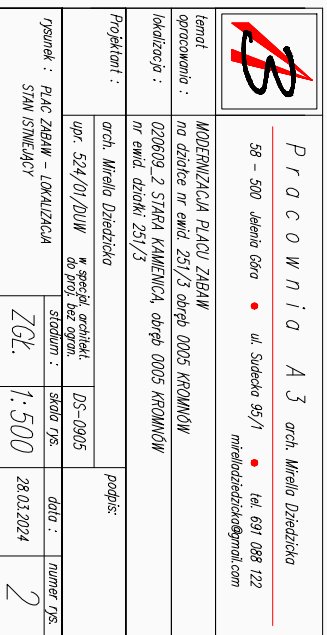 Pracownia A3 arch. Mirella Dziedzicka
58 - 500 Jelenia Góra • ul. Sudecka 95/1 • tel. 691 088 122
mirelladziedzicka@gmail.com
temat
opracowania :
MODERNIZACJA PLACU ZABAW
na działce nr ewid. 251/3 obręb 0005 KROMNÓW
lokalizacja :
020609_2 STARA KAMIENICA, obręb 0005 KROMNÓW
nr ewid. działki 251/3
Projektant :
arch. Mirella Dziedzicka
podpis:
upr. 524/01/DUW
w specjal. architekt.
do proj. bez ogran.
DS-0905
rysunek : PLAC ZABAW - LOKALIZACJA
STAN ISTNIEJĄCY
stadium :
ZGŁ.
skala rys.
1:500
data :
28.03.2024
numer rys.
2